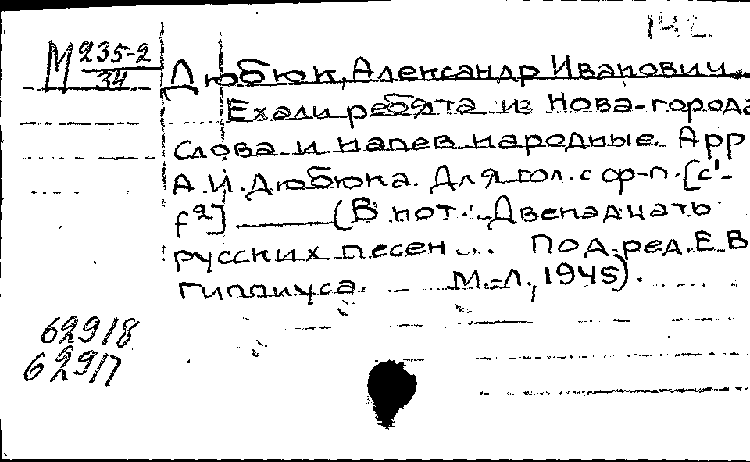 142
М 235-2
34
Дюбюк, Александр Иванович.
Ехали ребята из Нова-города
Слова и напев народные. Арр
А.И. Дюбюка. Для гол. с ф-п. [c¹-
f²] ——— (В нот.: Двенадцать
русских песен... Под. ред. Е.В
Гиппиуса. М.-Л., 1945).
62918
62917